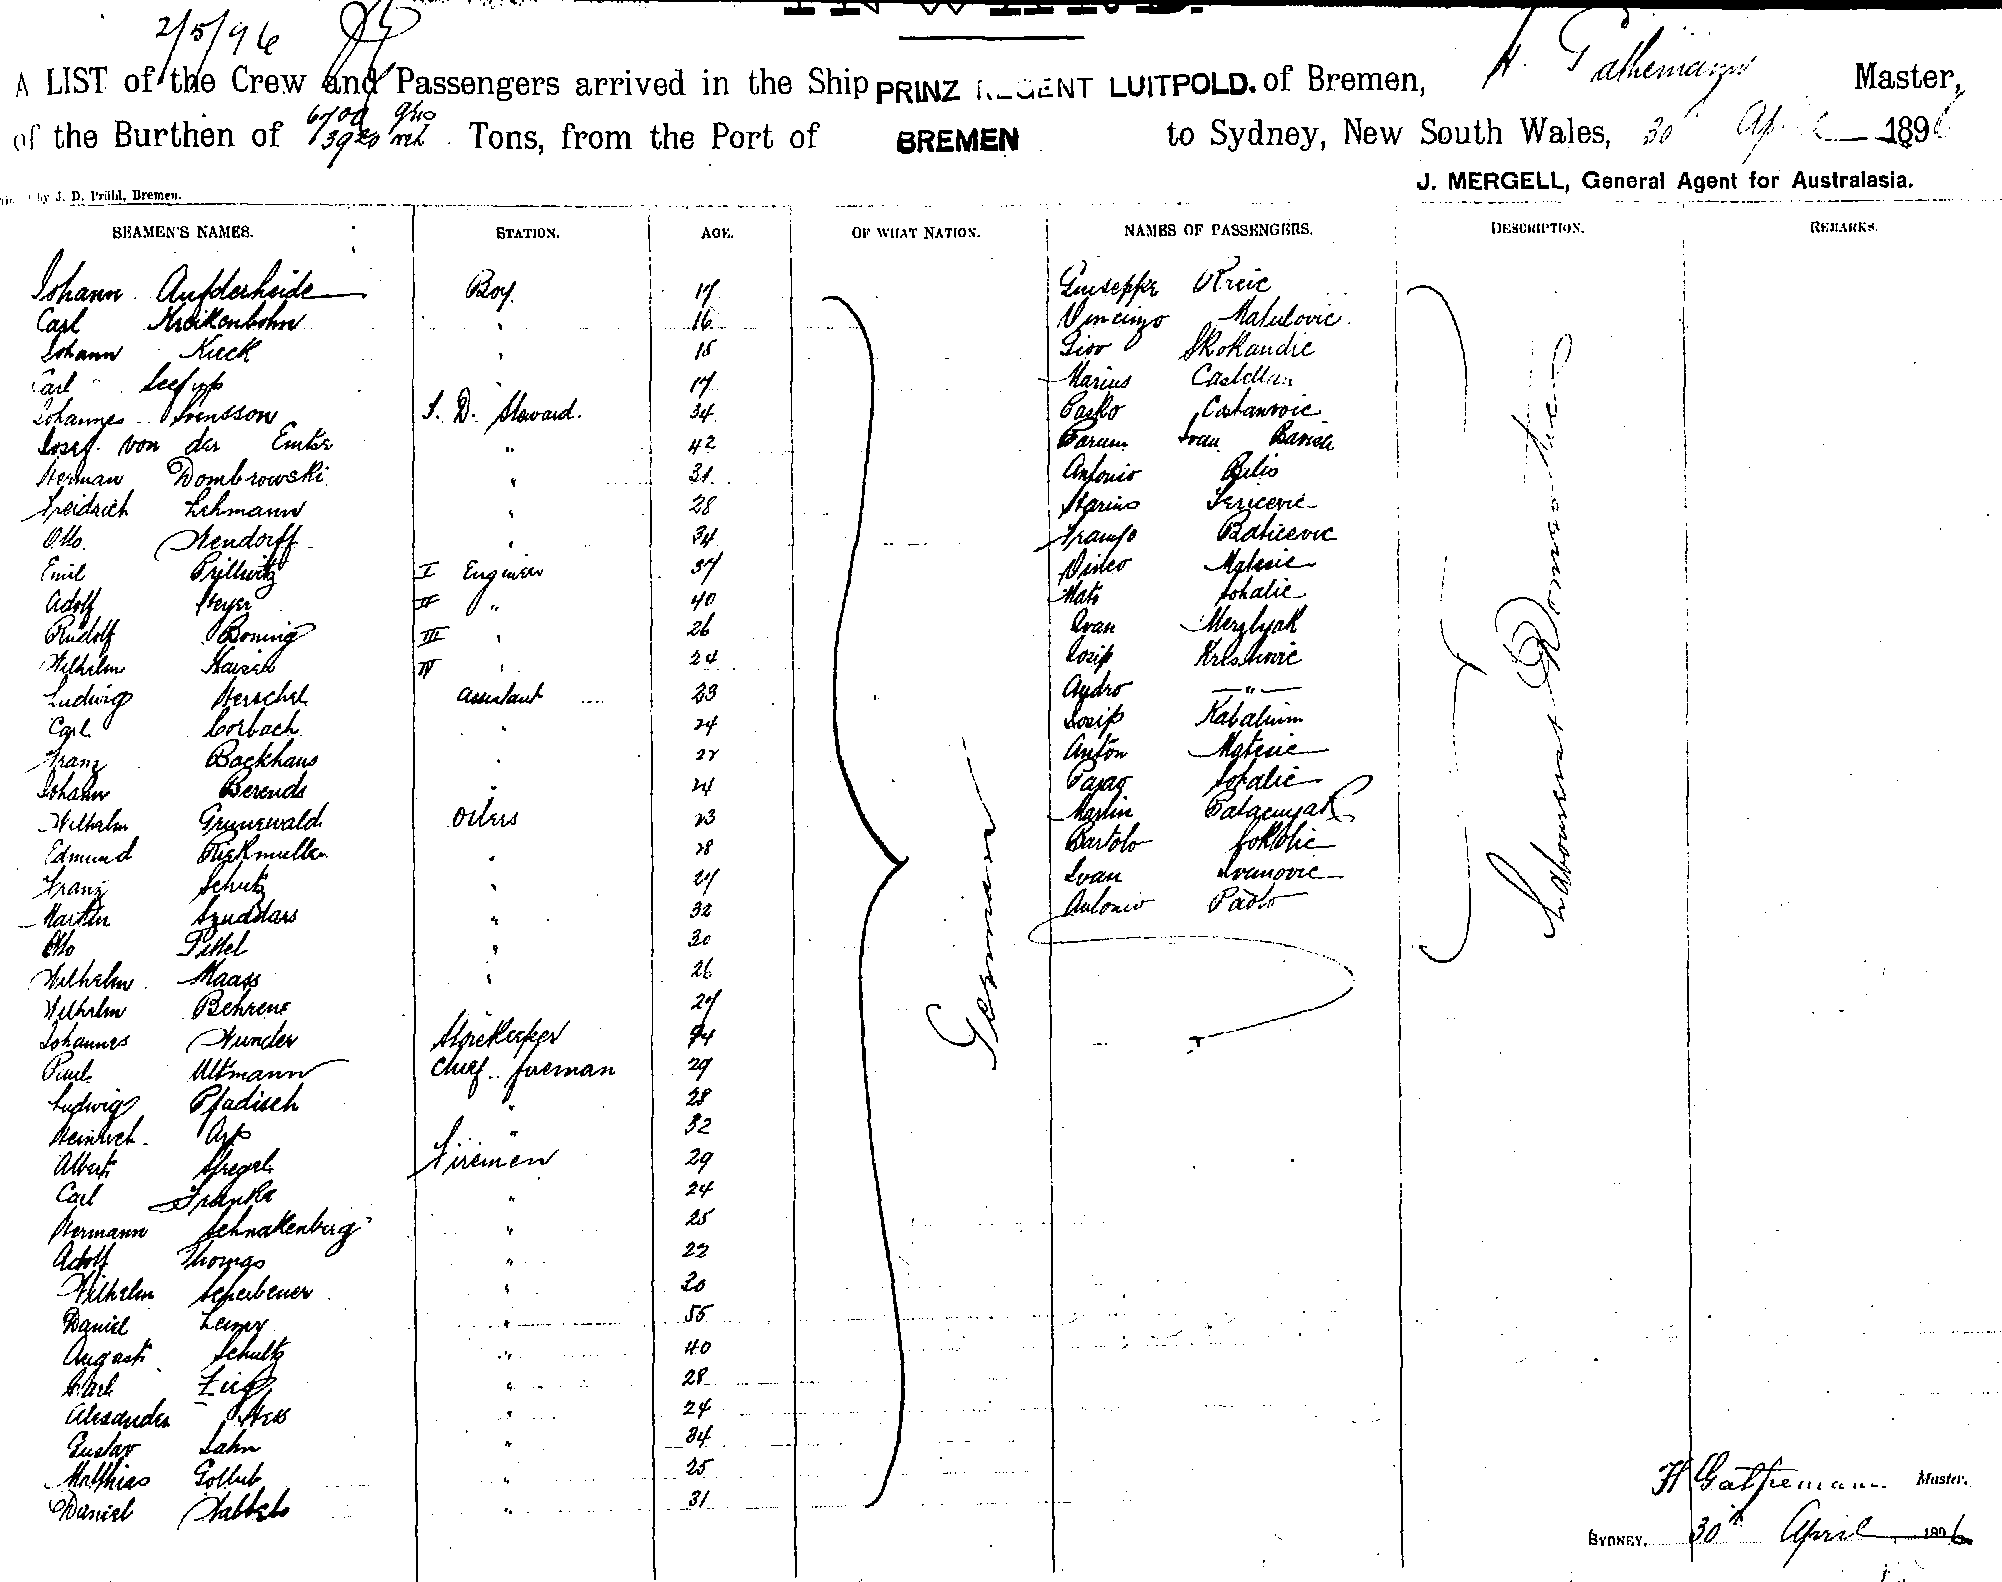 2/5/96
A LIST of the Crew and Passengers arrived in the Ship PRINZ REGENT LUITPOLD. of Bremen, H. Gathemann Master,
of the Burthen of 6700 grs 3920 net Tons, from the Port of BREMEN to Sydney, New South Wales, 30 April 1896
J. MERGELL, General Agent for Australasia.
by J. D. Prühl, Bremen.
SEAMEN'S NAMES. STATION. AGE. OF WHAT NATION. NAMES OF PASSENGERS. DESCRIPTION. REMARKS.
Johann Aufderheide Boy. 17 Guiseppe
Carl Kreikenbohn " 16 Vincenzo Matulovic
Johann Kuck " 15 Giov Skokandic
Carl " 17 Marius Castellan
Johannes Svensson S. D. Steward. 34 Pasko Castanovic
Josef von der " 42 Ivan
Herman Dombrowski " 31 Antonio Bilis
Freidrich Lehmann " 28 Marius
Otto Wendorff " 34 Franjo Baticevic
Emil Prillwitz I Engineer 37 Vinco Matesic
Adolf Heyer II " 40 Mato
Rudolf Boning III " 26 Ivan Merzlyak
Wilhelm IV " 24 Josip
Ludwig Herschel Assistant 23 Andro "
Carl Corbach " 24 Josip
Franz Backhaus " 27 Anton Matesic
Johann Berends " 24
Wilhelm Grunewald Oilers 23 Martin
Edmund Rickmuller " 28 Bartolo
Franz Schutz " 27 Ivan Ivanovic
Martin Szuddars " 32 Antonio Paolo
Otto Pittel " 30
Wilhelm Maass " 26
Wilhelm Behrens 27
Johannes Wunder Storekeeper 44
Paul Altmann Chief fireman 29
Ludwig Pfadisch " 28
Heinrich Arp " 32
Albert Firemen 29
Carl Franke " 24
Hermann Schnakenberg " 25
Adolf Thomas " 22
Wilhelm " 20
Daniel " 55
August Schultz " 40
Carl " 28
Alexander Hess " 24
Gustav Jahn " 34
Matthias Gollub " 25
Daniel " 31
German
Labourers & Domestics
H Gathemann Master.
SYDNEY. 30th April 1896